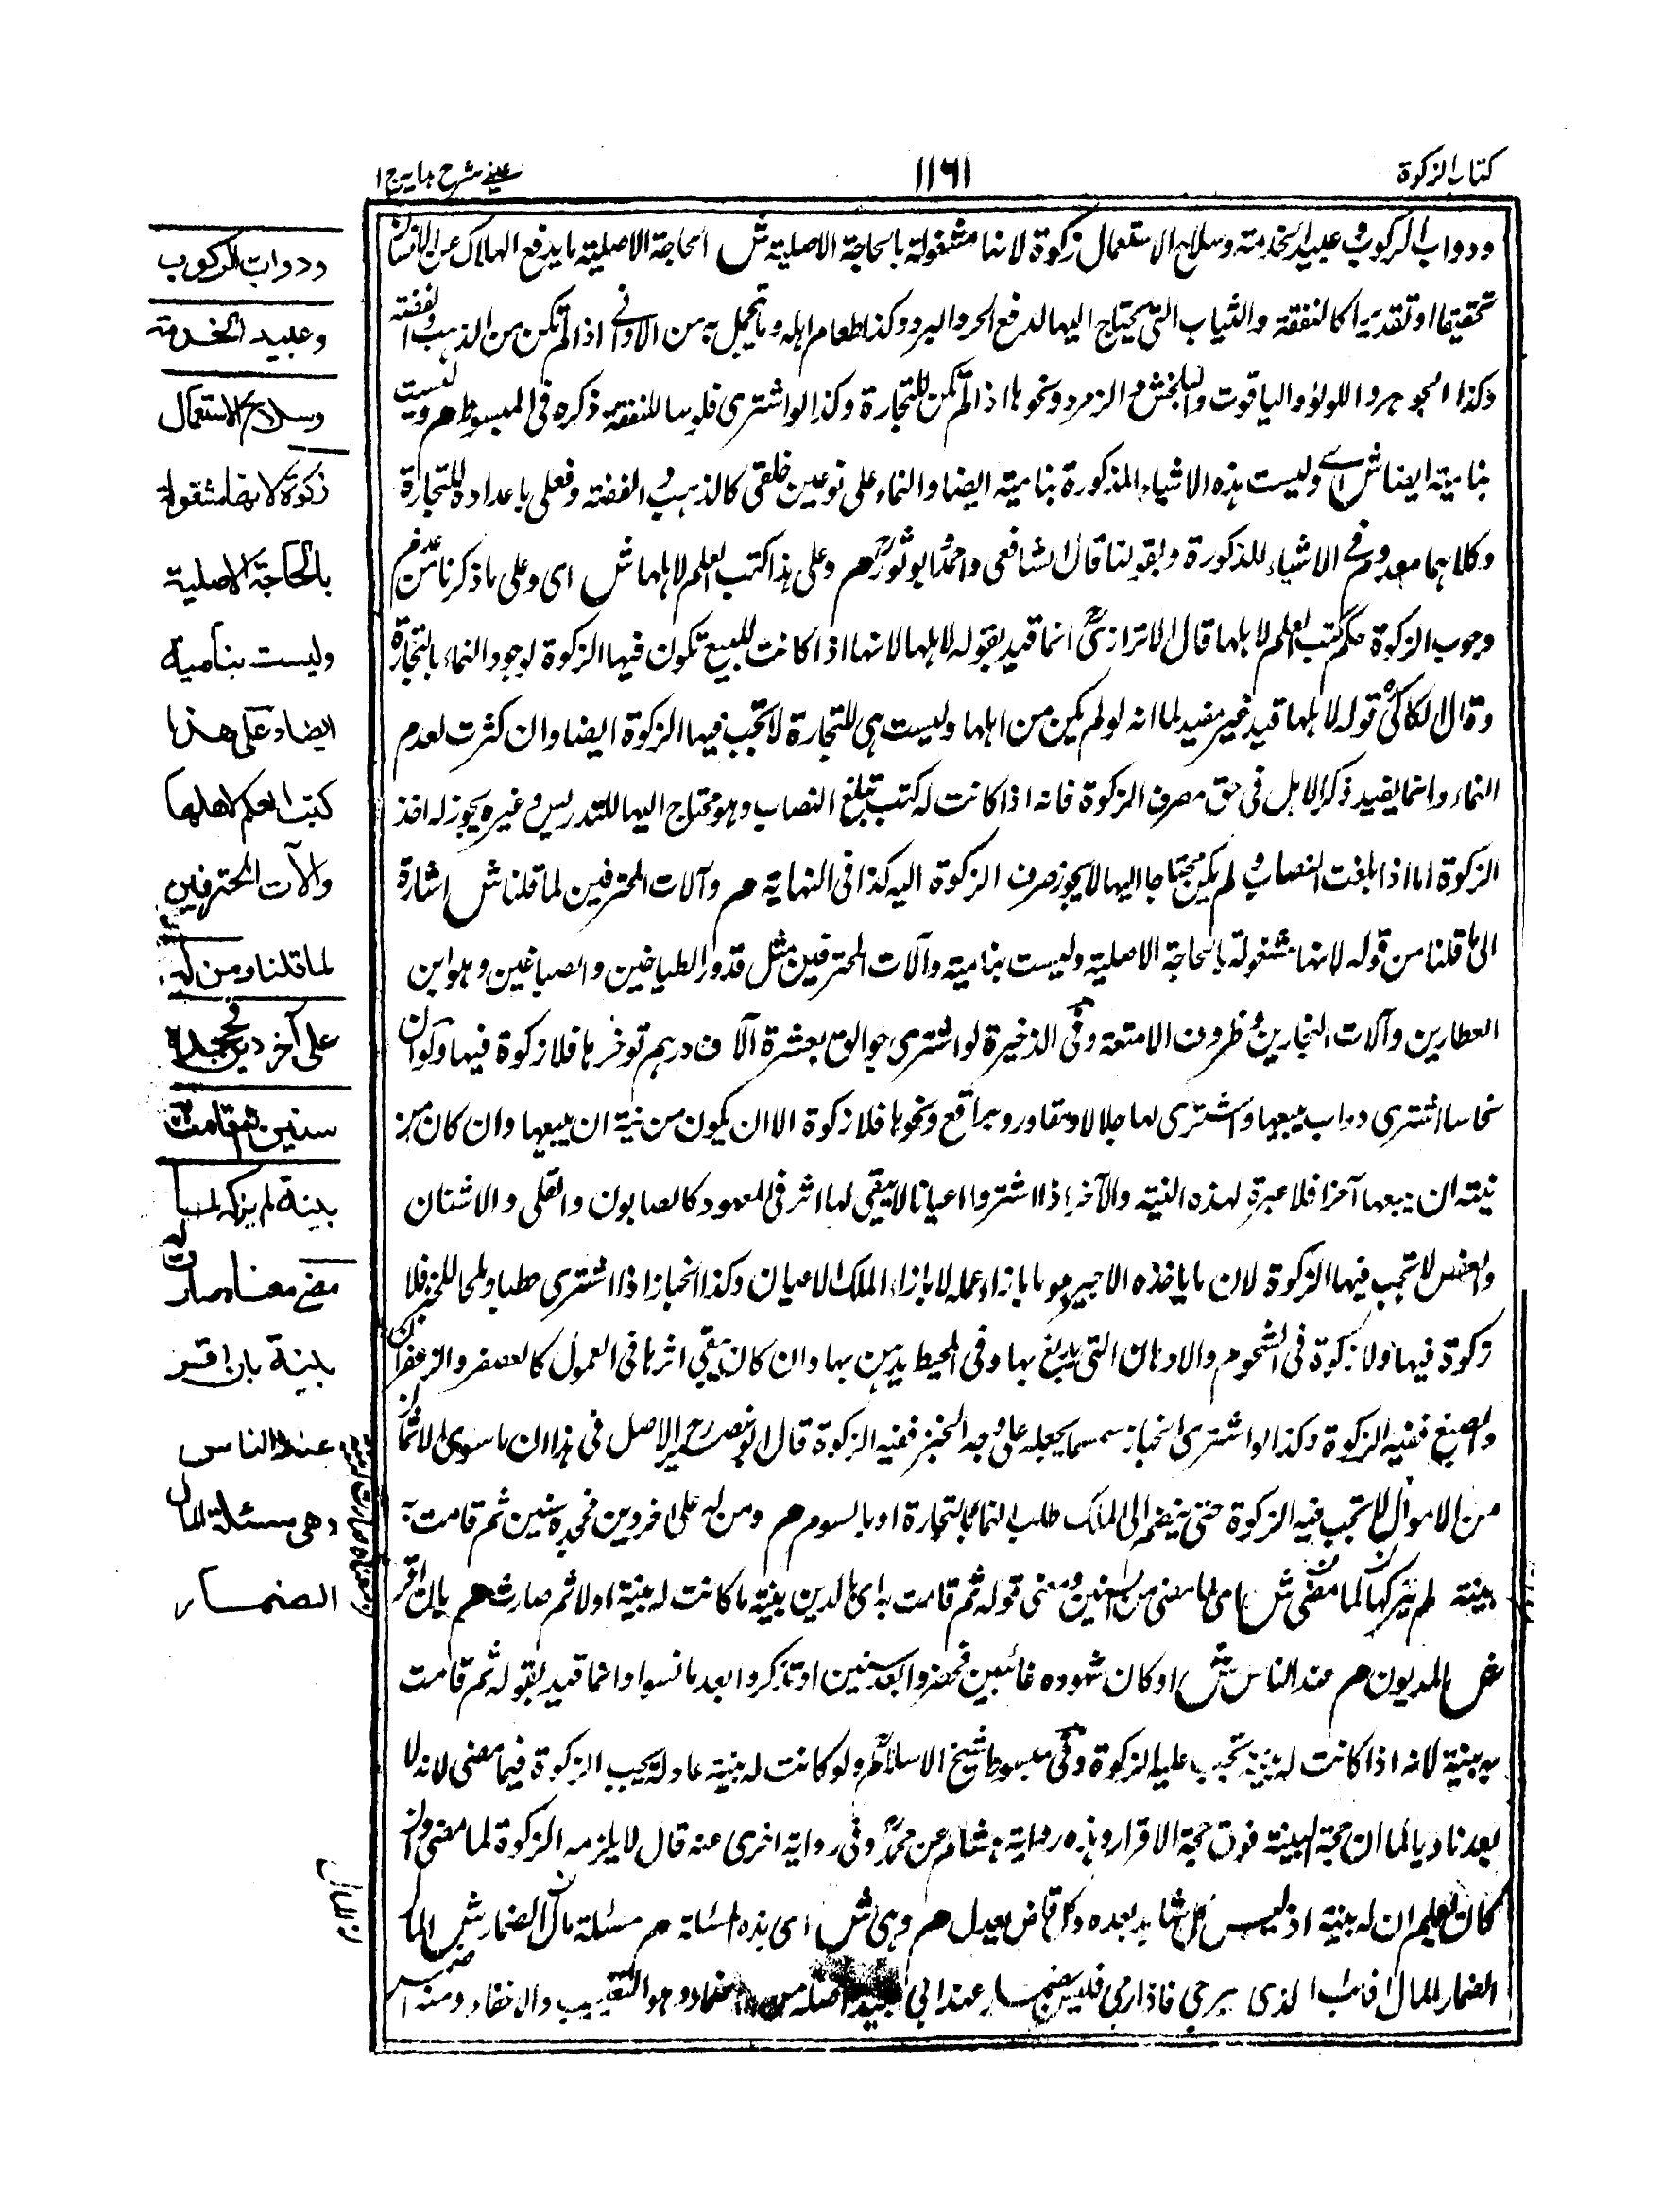 كتاب الزكوة
١١٦١
عيني شرح هدايه ج ١
ودواب الركوب وعبيد الخدمة وسلاح الاستعمال زكوة لانها مشغولة بالحاجة الاصلية ش الحاجة الاصلية ما يدفع الهلاك عن الانسان
تحقيقا او تقديرا كالنفقة والثياب التي يحتاج اليها لدفع الحر والبرد وكذا طعام اهله وما يتجمل به من الاواني اذا لم تكن من الذهب والفضة
وكذا الجوهر واللولؤ والياقوت والبلخش والزمرد ونحوها اذا لم تكن للتجارة وكذا لو اشترى فلوسا للنفقة ذكره في المبسوط م وليست
بنامية ايضا ش اي وليست هذه الاشياء المذكورة بنامية ايضا والنماء على نوعين خلقي كالذهب والفضة وفعلي باعداده للتجارة
وكلاهما معدوم في الاشياء المذكورة وبقولنا قال الشافعي واحمد وابو ثور م وعلى هذا كتب العلم لاهلها ش اي وعلى ما ذكرنا من عدم
وجوب الزكوة حكم كتب العلم لاهلها قال الاترازي انما قيد بقوله لاهلها لانها اذا كانت للبيع تكون فيها الزكوة لوجود النماء بالتجارة
وقال الكاكي قوله لاهلها قيد غير مفيد لما انه لو لم يكن من اهلها وليست هي للتجارة لا تجب فيها الزكوة ايضا وان كثرت لعدم
النماء وانما يفيد ذكر الاهل في حق مصرف الزكوة فانه اذا كانت له كتب تبلغ النصاب وهو محتاج اليها للتدريس وغيره يجوز له اخذ
الزكوة اما اذا بلغت النصاب ولم يكن محتاجا اليها لا يجوز صرف الزكوة اليه كذا في النهاية م وآلات المحترفين لما قلنا ش اشارة
الى ما قلنا من قوله لانها مشغولة بالحاجة الاصلية وليست بنامية وآلات المحترفين مثل قدور الطباخين والصباغين وهواين
العطارين وآلات النجارين وظروف الامتعة وفي الذخيرة لو اشترى جوالق بعشرة آلاف درهم توخرها فلا زكوة فيها ولو ان
نخاسا اشترى دواب يبيعها واشترى لها جلالا ومقاود وبراقع ونحوها فلا زكوة الا ان يكون من نية ان يبيعها وان كان من
نيته ان يبيعها آخرا فلا عبرة لهذه النية والآخر اذا اشتروا اعيانا لا يبقى لها اثر في المعمود كالصابون والقلى والاشنان
والعفص لا تجب فيها الزكوة لان ما ياخذه الاجير هو ما بازاء عمله لا بازاء الملك الاعيان وكذا الخباز اذا اشترى حطبا وملحا للخبز فلا
زكوة فيها ولا زكوة في الشحوم والادهان التي يدبغ بها وفي المحيط يدهن بها وان كان يبقى اثرها في المعمول كالعصفر والزعفران
والصبغ ففيه الزكوة وكذا لو اشترى الخباز سمسما يجعله على وجه الخبز ففيه الزكوة قال ابو نصر رح الاصل في هذا ان ما سوى الاثمان
من الاموال لا تجب فيه الزكوة حتى ينضم الى الملك طلب النماء بالتجارة او بالسوم م ومن له على اخر دين فجحده سنين ثم قامت به
بينة لم يزكها لما مضى ش اي لما مضى من السنين ومعنى قوله ثم قامت به اي بالدين بينة ما كانت له بينة اولا ثم صارت م بان اقر
ش المديون م عند الناس ش او كان شهوده غائبين فحضروا بعد سنين او تذكروا بعد ما نسوا وانما قيد بقوله ثم قامت
به بينة لانه اذا كانت له بينة تجب عليه الزكوة وفي مبسوط شيخ الاسلام ولو كانت له بينة عادلة تجب الزكوة فيما مضى لانه لا
يعد ناويا لما ان حجة البينة فوق حجة الاقرار وهذه رواية هشام عن محمد وفي رواية اخرى عنه قال لا يلزمه الزكوة لما مضى وان
كان يعلم ان له بينة اذ ليس كل شاهد يعدل وكل قاض يعدل م وهي ش اي هذه المسئلة م مسئلة مال الضمار ش المال
الضمار المال الغائب الذي يرجى فاذا رجي فليس بضمار عند ابي عبيد اصله من الاضمار وهو التغيب والاخفاء ومنه
ودواب الركوب
وعبيد الخدمة
وسلاح الاستعمال
زكوة لانها مشغولة
بالحاجة الاصلية
وليست بنامية
ايضا وعلى هذا
كتب العلم لاهلها
وآلات المحترفين
لما قلنا ومن له
على آخر دين فجحده
سنين ثم قامت به
بينة لم يزكه لما
مضى معناه صارت له
بينة بان اقر
عند الناس
وهي مسئلة المال
الضمار